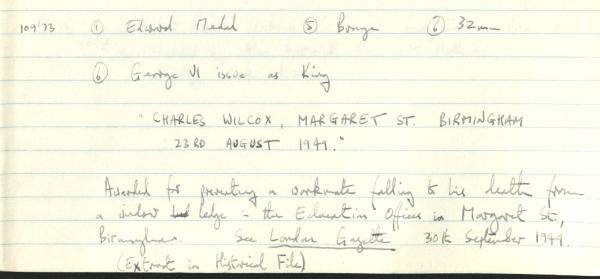 109'73 ① Edward Medal ⑤ Bronze ⑥ 32mm
⑥ George VI issue as King
"CHARLES WILCOX, MARGARET ST. BIRMINGHAM
23RD AUGUST 1949."
Awarded for preventing a workmate falling to his death from
a window ledge - the Education Offices in Margaret St,
Birmingham. See London Gazette 30th September 1949.
(Extract in Historical File)